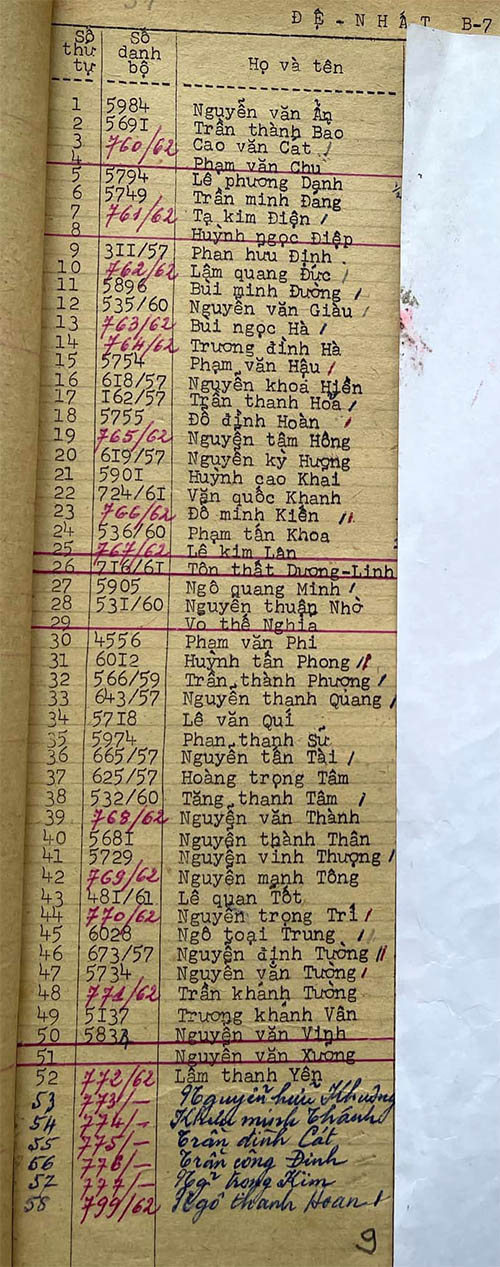 ĐỆ-NHẤT B-7
Số thứ tự Số danh bộ Họ và tên
1 5984 Nguyễn văn Ẩn
2 569I Trần thành Bao
3 760/62 Cao văn Cát /
4 Phạm văn Chu
5 5794 Lê phương Danh
6 5749 Trần minh Đang
7 761/62 Tạ kim Điện /
8 Huỳnh ngọc Điệp
9 3II/57 Phan hưu Định
10 762/62 Lâm quang Đức /
11 5896 Bùi minh Đường /
12 535/60 Nguyễn văn Giàu /
13 763/62 Bùi ngọc Hà /
14 764/62 Trương đình Hà
15 5754 Phạm văn Hậu /
16 6I8/57 Nguyễn khoa Hiền
17 I62/57 Trần thanh Hoà /
18 5755 Đỗ đình Hoàn /
19 765/62 Nguyễn tâm Hồng
20 6I9/57 Nguyễn kỳ Hương
21 590I Huỳnh cao Khai
22 724/6I Văn quốc Khanh
23 766/62 Đỗ minh Kiên //
24 536/60 Phạm tấn Khoa
25 767/62 Lê kim Lân
26 7I6/6I Tôn thất Dương-Linh
27 5905 Ngô quang Minh /
28 53I/60 Nguyễn thuận Nhờ
29 Vo thế Nghĩa
30 4556 Phạm văn Phi
31 60I2 Huỳnh tấn Phong //
32 566/59 Trần thành Phương /
33 643/57 Nguyễn thanh Quang /
34 57I8 Lê văn Quí
35 5974 Phan thanh Sử
36 665/57 Nguyễn tấn Tài /
37 625/57 Hoàng trọng Tâm
38 532/60 Tăng thanh Tâm /
39 768/62 Nguyễn văn Thành
40 568I Nguyễn thành Thân
41 5729 Nguyễn vinh Thượng /
42 769/62 Nguyễn mạnh Tông
43 48I/6I Lê quan Tốt
44 770/62 Nguyễn trọng Trí /
45 6028 Ngô toại Trung //
46 673/57 Nguyễn định Tường //
47 5734 Nguyễn văn Tường /
48 771/62 Trần khánh Tường
49 5I37 Trương khanh Vân
50 Nguyễn văn Vinh
51 Nguyễn văn Xương
52 772/62 Lâm thanh Yên
53 773/— Nguyễn hữu Khương
54 774/— minh Thánh
55 775/— Trần đình Cát
56 776/— Trần công Định
57 777/— Kim
58 799/62 Ngô thanh Hoan /
9